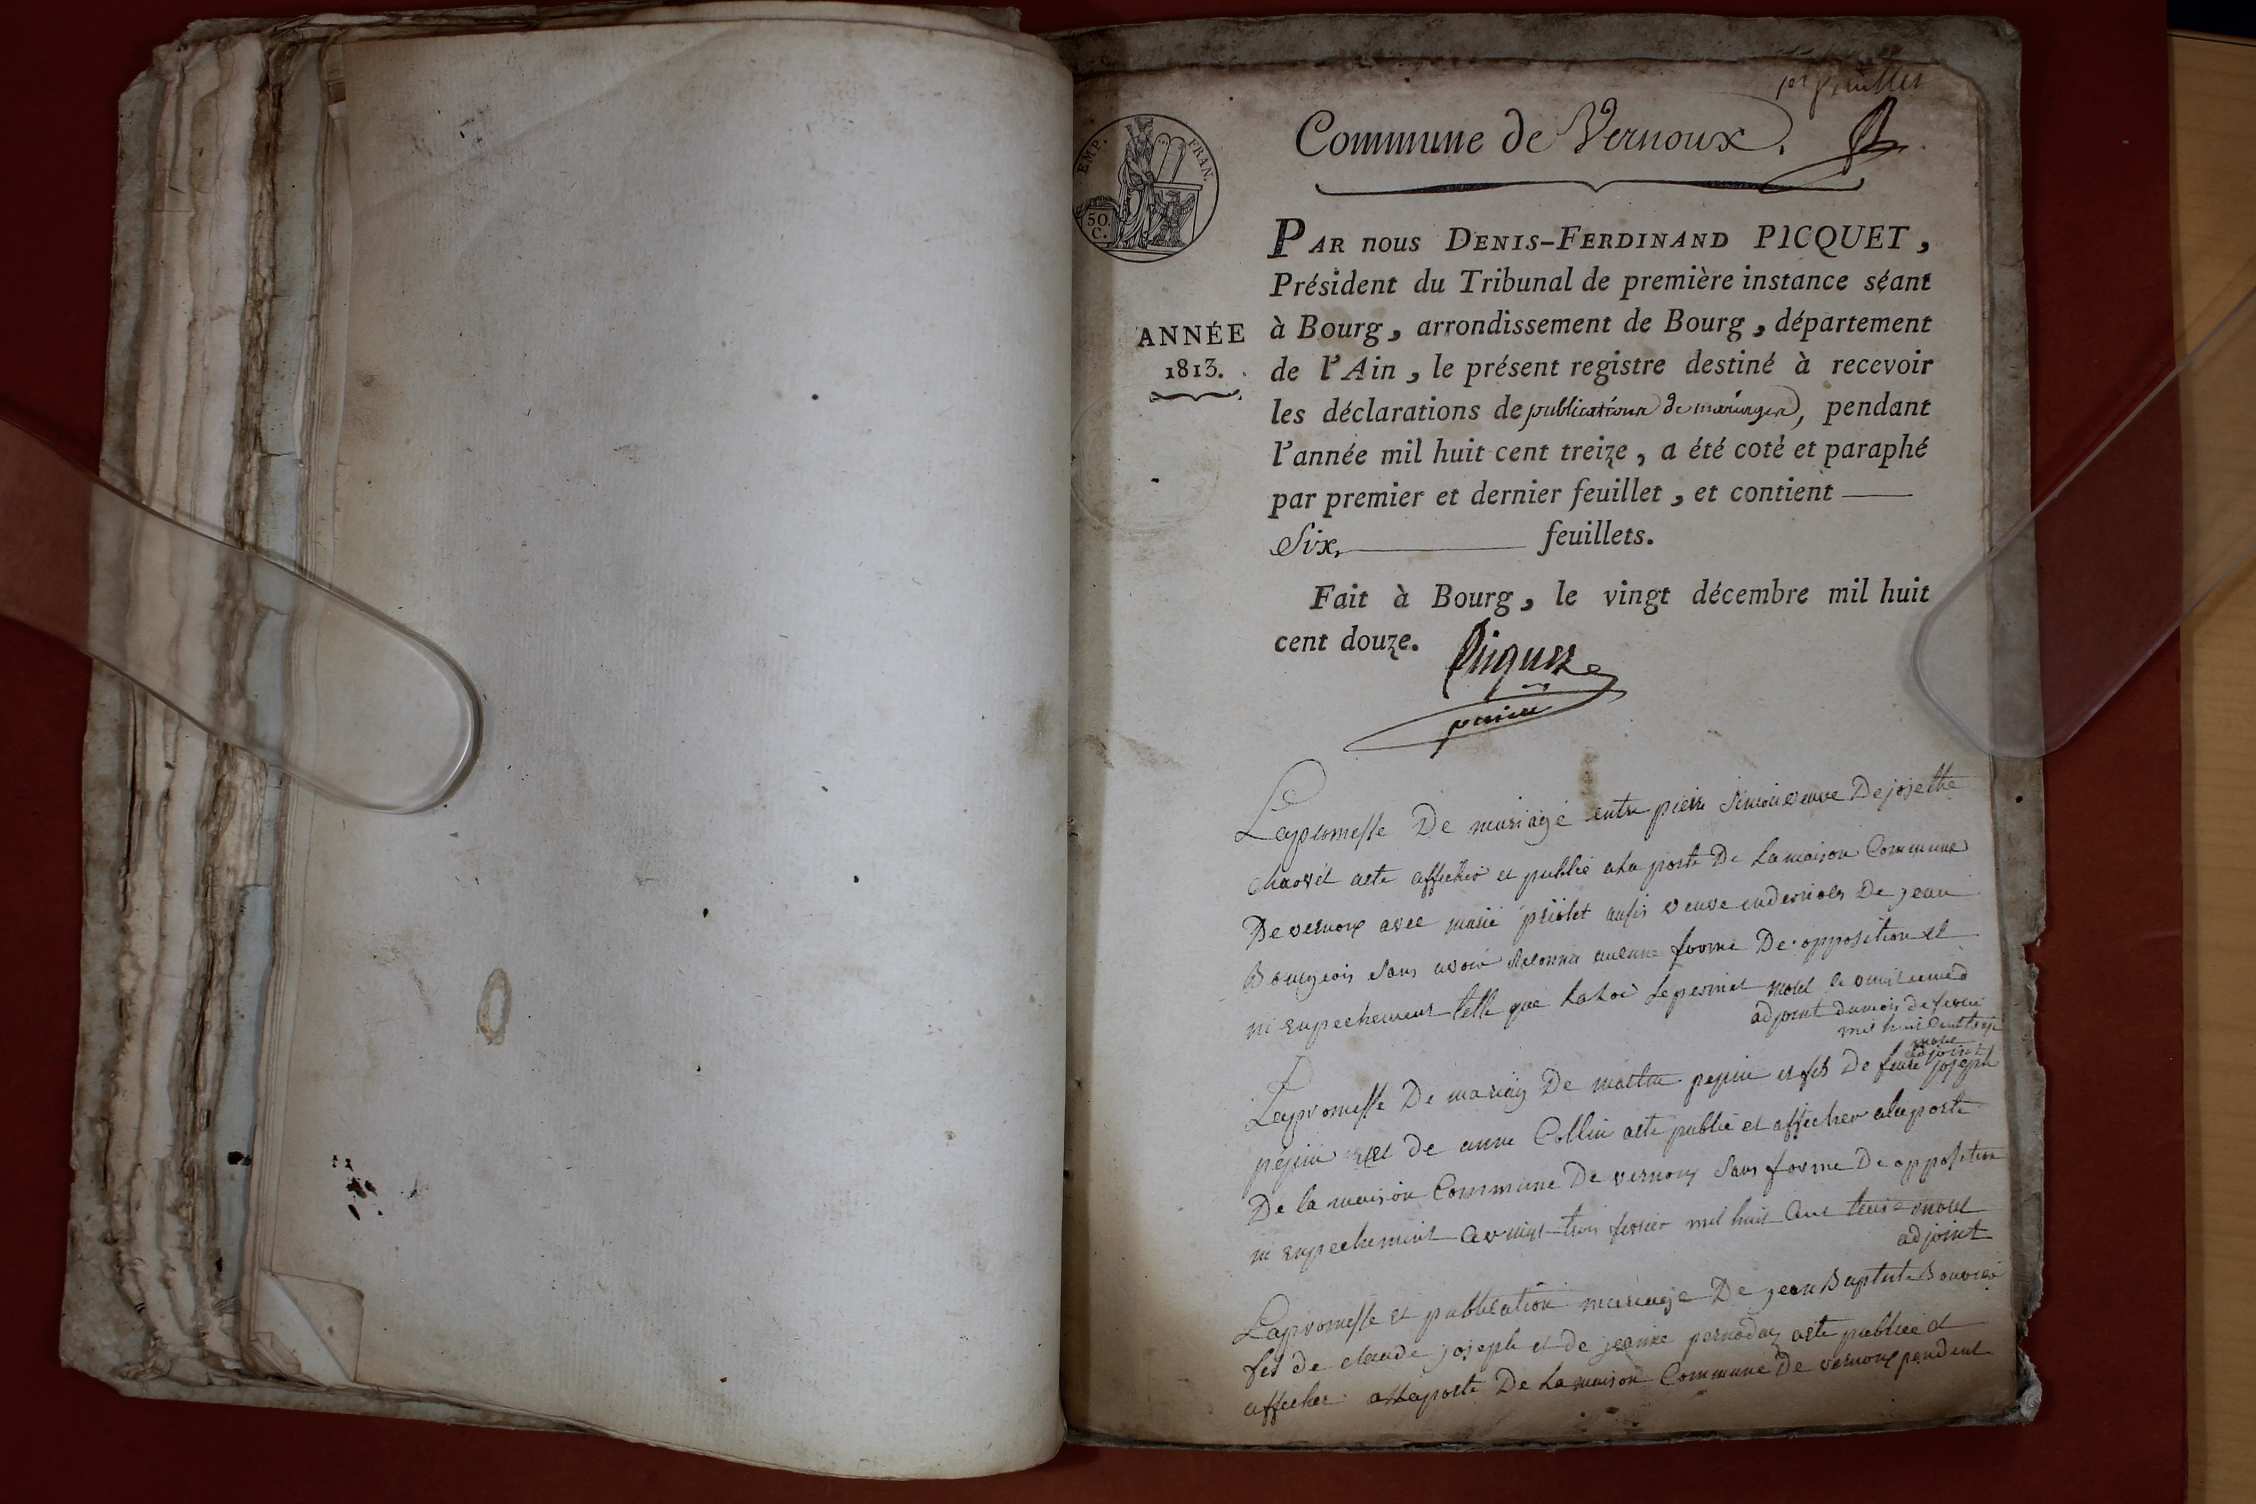 1er feuillet
Commune de Vernoux.
EMP. FRAN.
50.
C.
PAR nous DENIS-FERDINAND PICQUET,
Président du Tribunal de première instance séant
ANNÉE
1813.
à Bourg, arrondissement de Bourg, département
de l'Ain, le présent registre destiné à recevoir
les déclarations de publications de mariages, pendant
l'année mil huit cent treize, a été coté et paraphé
par premier et dernier feuillet, et contient
Six, feuillets.
Fait à Bourg, le vingt décembre mil huit
cent douze.
Picquet
Lapromesse De mariage entre pierre veuve De josephe
acte afficher et publié ala porte De Lamaison Commune
De vernoux avec marie aussi veuve De jean
Bourgeois sans avoir aucune forme De opposition et
ni enpechement telle que la Loi Lepermet morel
adjoint dumois de
mil huit cent
adjoint
Lapromesse De mariage De pepin et fils De joseph
pepin et de anne Collin acte publié et afficher alaporte
De la maison Commune De vernoux Sans forme De opposition
ni enpechement ce vingt trois fevrier mil huit cent treize morel
adjoint
Lapromesse et publication mariage De jean Baptiste Bouvier
fils de claude joseph et de jeanne acte publiée et
afficher alaporte De La maison Commune De vernoux pendent